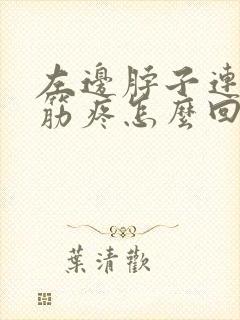 左邊脖子連
筋疼怎麼回
葉清歡